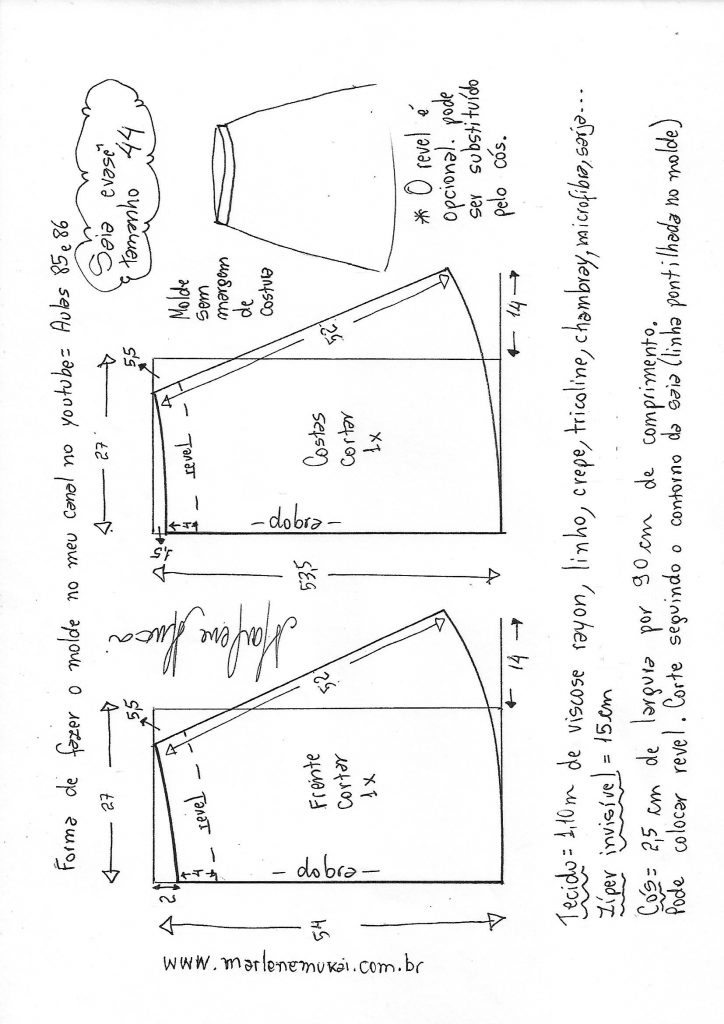 Forma de fazer o molde no meu canal no youtube= Aulas 85 e 86
Saia evasê
tamanho 44
Molde
sem
margem
de
costura
* O revel é
opcional. pode
ser substituído
pelo cós.
27
5,5
2
4
revel
52
Frente
Cortar
1x
- dobra -
54
14
27
5,5
1,5
4
revel
52
Costas
Cortar
1x
- dobra -
53,5
14
www.marlenemukai.com.br
Tecido= 1,10m de viscose rayon, linho, crepe, tricoline, chambray, microfibra, sarja...
Zíper invisível = 15cm
Cós= 2,5 cm de largura por 90 cm de comprimento.
Pode colocar revel. Corte seguindo o contorno da saia (linha pontilhada no molde)